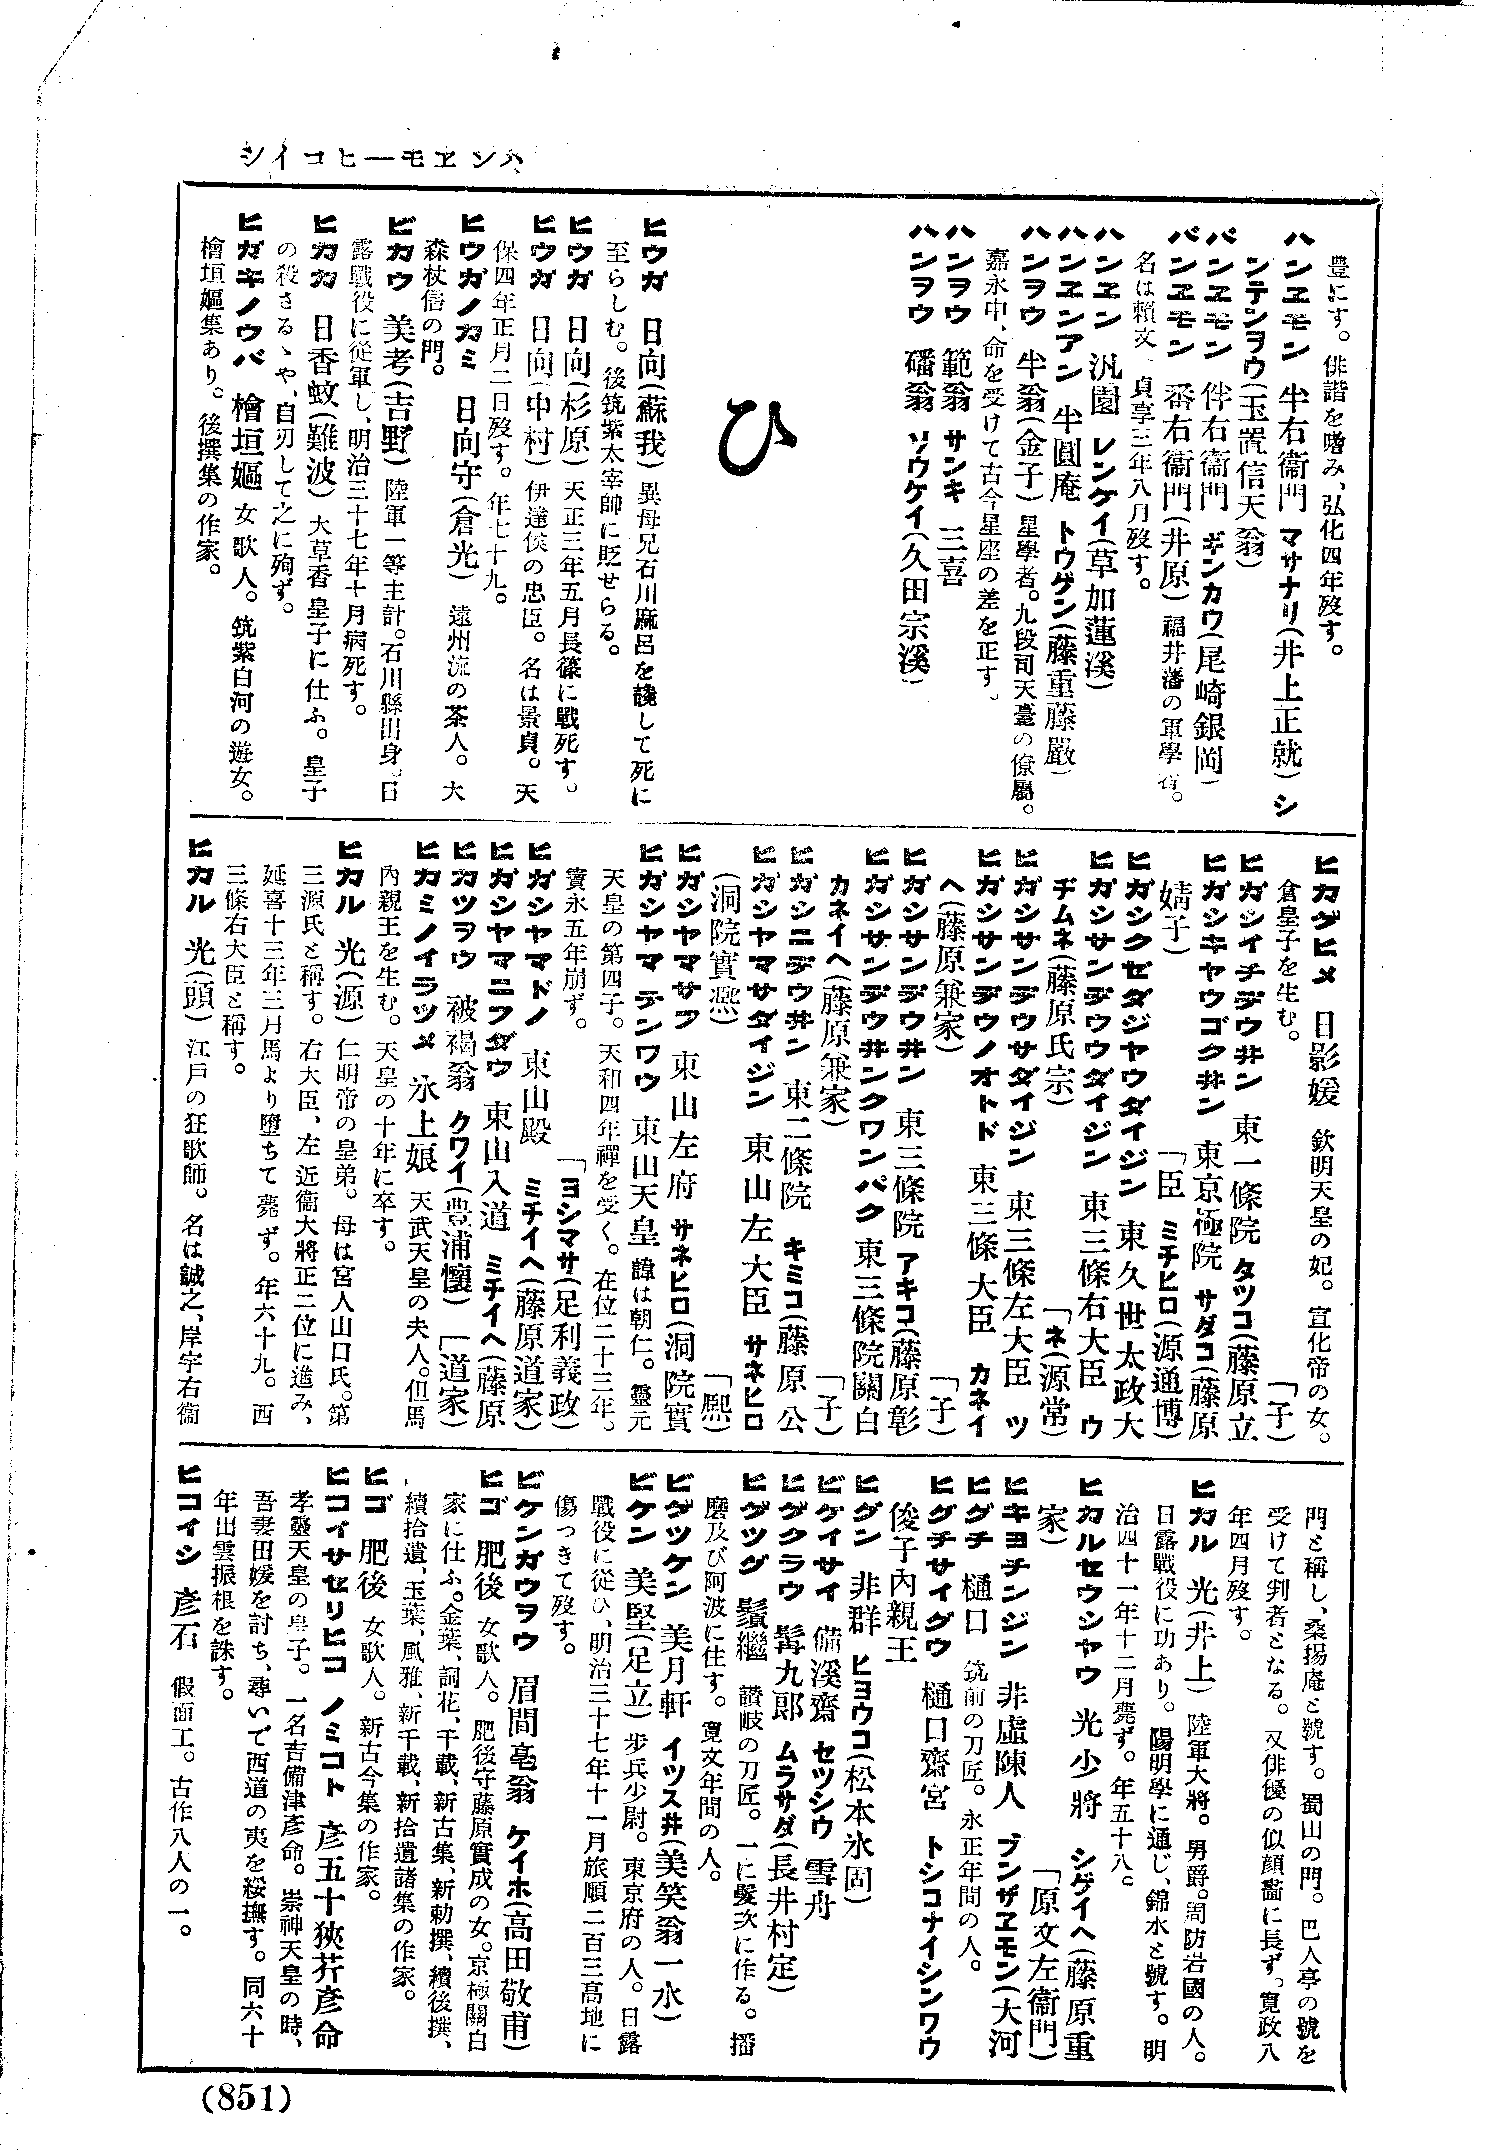 ハンヱモ―ヒコイシ
豊にす。俳諧を嗜み、弘化四年歿す。
ハンヱモン 半右衞門 マサナリ(井上正就) シ
ンテンヲウ(玉置信天翁)
バンヱモン 伴右衞門 ギンカウ(尾崎銀岡)
バンヱモン 番右衞門(井原) 福井藩の軍學者。
名は賴文、貞享三年八月歿す。
ハンヱン 汎園 レンケイ(草加蓮溪)
ハンヱンアン 半圓庵 トウゲン(藤重藤嚴)
ハンヲウ 半翁(金子) 星學者。九段司天臺の僚屬。
嘉永中、命を受けて古今星座の差を正す。
ハンヲウ 範翁 サンキ 三喜
ハンヲウ 磻翁 ソウケイ(久田宗溪)
ひ
ヒウガ 日向(蘇我) 異母兄石川麻呂を譏して死に
至らしむ。後筑紫太宰帥に貶せらる。
ヒウガ 日向(杉原) 天正三年五月長篠に戰死す。
ヒウガ 日向(中村) 伊達侯の忠臣。名は景貞。天
保四年正月二日歿す。年七十九。
ヒウガノカミ 日向守(倉光) 遠州流の茶人。大
森杖信の門。
ビカウ 美考(吉野) 陸軍一等主計。石川縣出身。日
露戰役に從軍し、明治三十七年十月病死す。
ヒカカ 日香蚊(難波) 大草香皇子に仕ふ。皇子
の殺さるゝや、自刃して之に殉ず。
ヒガキノウバ 檜垣嫗 女歌人。筑紫白河の遊女。
檜垣嫗集あり。後撰集の作家。
ヒカゲヒメ 日影媛 欽明天皇の妃。宣化帝の女。
倉皇子を生む。
ヒガシイチデウ井ン 東一條院 タツコ(藤原立
「子)
ヒガシキヤウゴク井ン 東京極院 サダコ(藤原
婧子)
ヒガシクゼダジヤウダイジン 東久世太政大
「臣 ミチヒロ(源通博)
ヒガシサンデウウダイジン 東三條右大臣 ウ
ヂムネ(藤原氏宗)
ヒガシサンデウサダイジン 東三條左大臣 ツ
「ネ(源常)
ヒガシサンデウノオトド 東三條大臣 カネイ
ヘ(藤原兼家)
ヒガシサンデウ井ン 東三條院 アキコ(藤原彰
「子)
ヒガシサンデウ井ンクワンパク 東三條院關白
カネイヘ(藤原兼家)
ヒガシニデウ井ン 東二條院 キミコ(藤原公
「子)
ヒガシヤマサダイジン 東山左大臣 サネヒロ
(洞院實熙)
ヒガシヤマサフ 東山左府 サネヒロ(洞院實
「熙)
ヒガシヤマテンワウ 東山天皇 諱は朝仁。靈元
天皇の第四子。天和四年禪を受く。在位二十三年。
寳永五年崩ず。
ヒガシヤマドノ 東山殿 ミチイヘ(藤原道家)
「ヨシマサ(足利義政)
ヒガシヤマニフダウ 東山入道 ミチイヘ(藤原
「道家)
ヒカツヲウ 被褐翁 クワイ(豊浦懷)
ヒカミノイラツメ 氷上娘 天武天皇の夫人。但馬
内親王を生む。天皇の十年に卒す。
ヒカル 光(源) 仁明帝の皇弟。母は宮人山口氏。第
三源氏と稱す。右大臣、左近衞大將正二位に進み、
延喜十三年三月馬より墮ちて薨ず。年六十九。西
三條右大臣と稱す。
ヒカル 光(頭) 江戸の狂歌師。名は誠之、岸宇右衞
門と稱し、桑揚庵と號す。蜀山の門。巴人亭の號を
受けて判者となる。又俳優の似顔畵に長ず。寛政八
年四月歿す。
ヒカル 光(井上) 陸軍大將。男爵。周防岩國の人。
日露戰役に功あり。陽明學に通じ、錦水と號す。明
治四十一年十二月薨ず。年五十八。
ヒカルセウシヤウ 光少將 シゲイヘ(藤原重
家)
ヒキヨチンジン 非虛陳人 ブンザヱモン(大河
「原文左衞門)
ヒグチ 樋口 筑前の刀匠。永正年間の人。
ヒグチサイグウ 樋口齋宮 トシコナイシンワウ
俊子内親王
ヒグン 非群 ヒヨウコ(松本氷固)
ビケイサイ 備溪齋 セツシウ 雪舟
ヒゲクラウ 髯九郎 ムラサダ(長井村定)
ヒゲツグ 鬚繼 讃岐の刀匠。一に髮次に作る。播
磨及び阿波に住す。寛文年間の人。
ビゲツケン 美月軒 イツス井(美笑翁一水)
ビケン 美堅(足立) 步兵少尉。東京府の人。日露
戰役に從ひ、明治三十七年十一月旅順二百三高地に
傷つきて歿す。
ビケンガウヲウ 眉間毫翁 ケイホ(高田敬甫)
ヒゴ 肥後 女歌人。肥後守藤原實成の女。京極關白
家に仕ふ。金葉、詞花、千載、新古集、新勅撰、續後撰、
續拾遺、玉葉、風雅、新千載、新拾遺諸集の作家。
ヒゴ 肥後 女歌人。新古今集の作家。
ヒコイサセリヒコ ノミコト 彥五十狹芹彥命
孝靈天皇の皇子。一名吉備津彥命。崇神天皇の時、
吾妻田媛を討ち、尋いで西道の夷を綏撫す。同六十
年出雲振根を誅す。
ヒコイシ 彥石 假面工。古作八人の一。
(851)